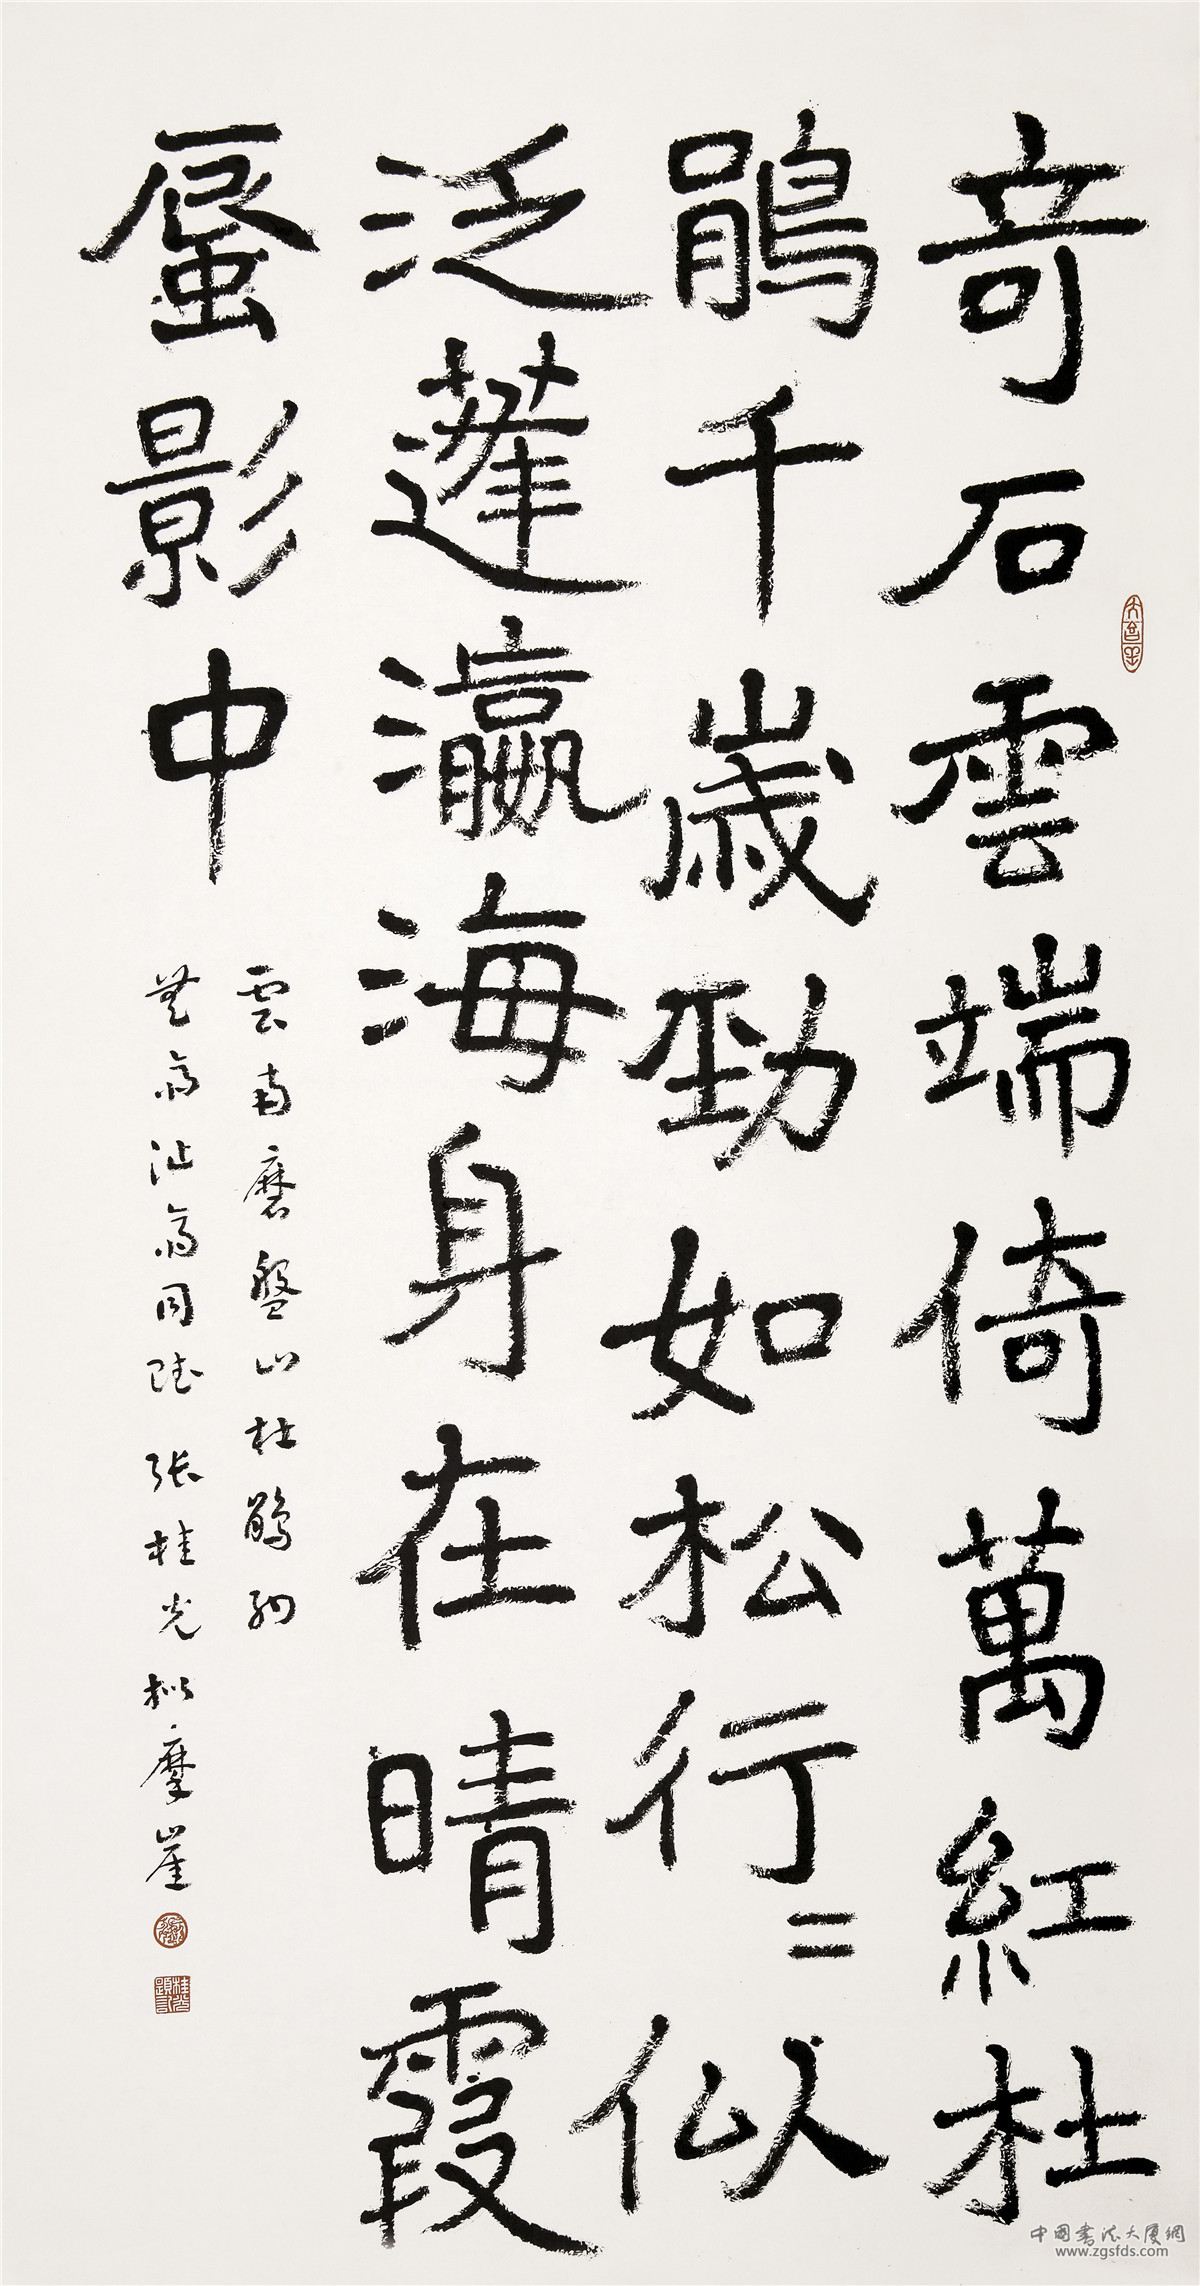 竒石雲端倚萬紅杜
鵑千歲勁如松行〻似
泛蓬瀛海身在晴霞
蜃影中
雲南磨盤山杜鵑
齋沚齋同 張桂光擬摩崖
中國書法大廈網
www.zgsfds.com